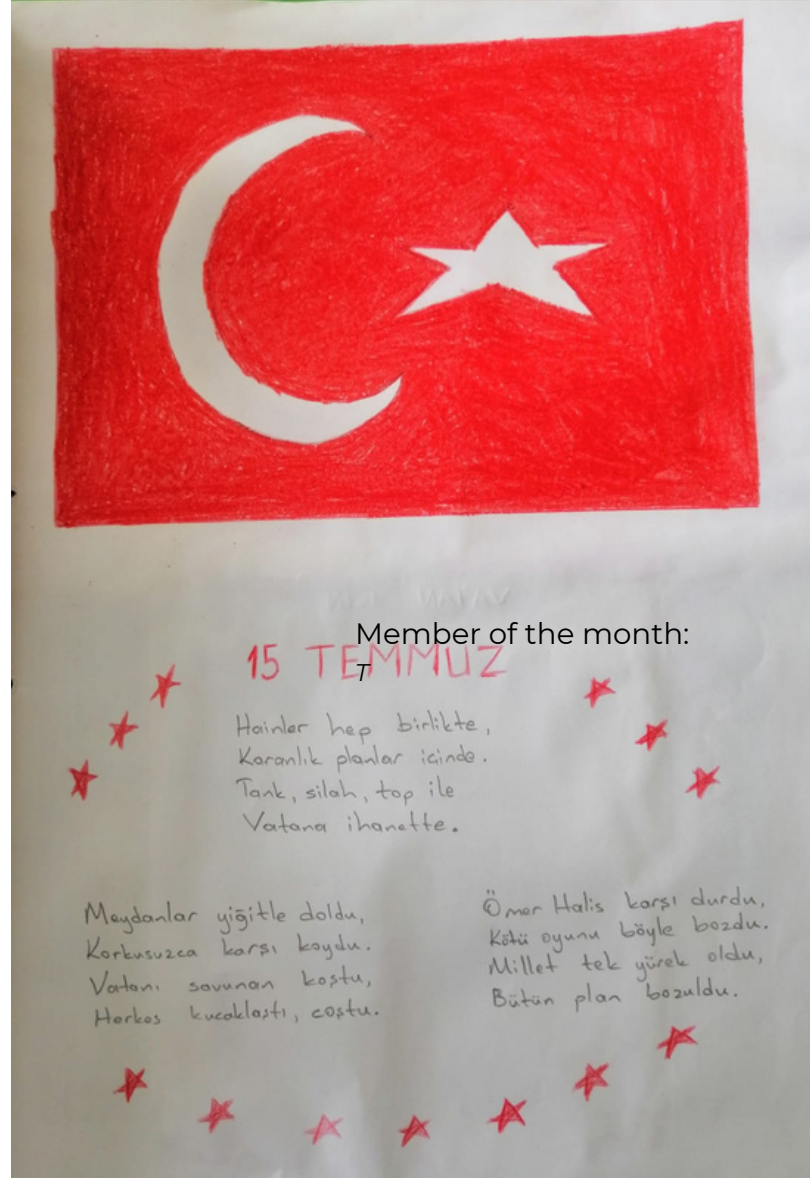 Member of the month:
T
15 TEMMUZ
Hainler hep birlikte,
Karanlık planlar içinde.
Tank, silah, top ile
Vatana ihanette.
Meydanlar yiğitle doldu,
Korkusuzca karşı koydu.
Vatanı savunan koştu,
Herkes kucaklaştı, coştu.
Ömer Halis karşı durdu,
Kötü oyunu böyle bozdu.
Millet tek yürek oldu,
Bütün plan bozuldu.